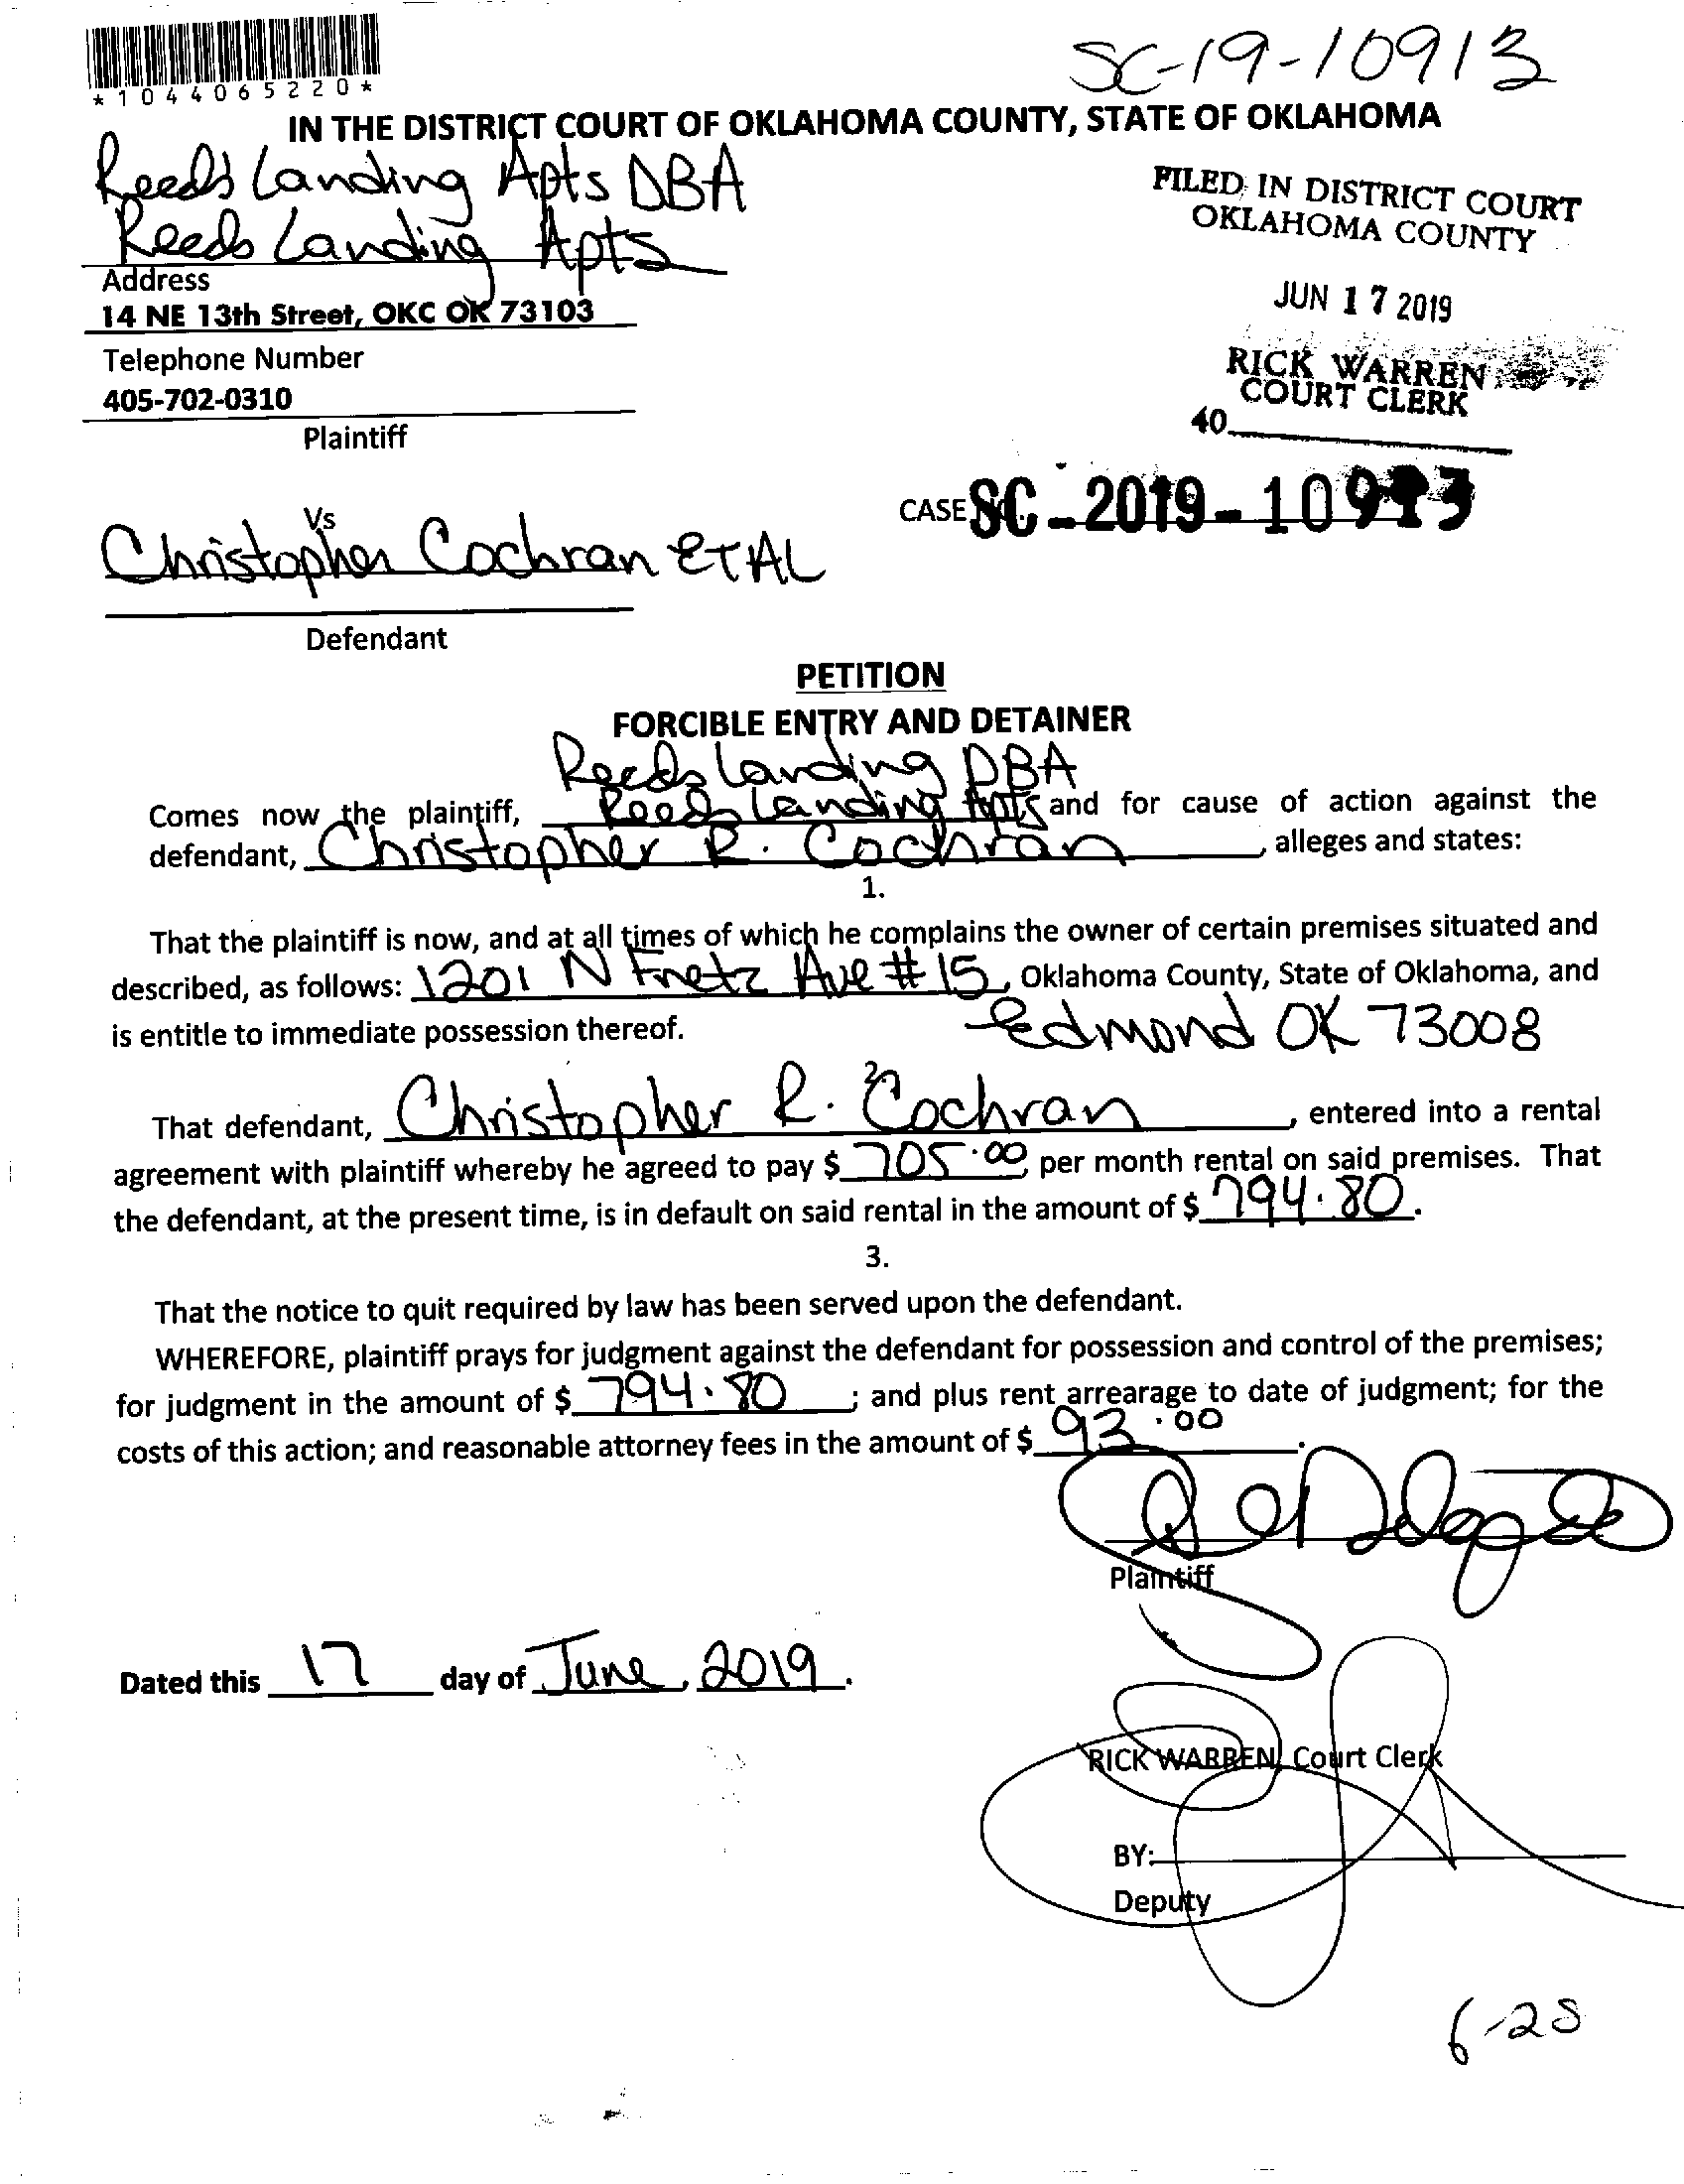 *1044065220*
SC-19-10913
IN THE DISTRICT COURT OF OKLAHOMA COUNTY, STATE OF OKLAHOMA
Reeds Landing Apts DBA
Reeds Landing Apts
Address
14 NE 13th Street, OKC OK 73103
Telephone Number
405-702-0310
Plaintiff
FILED IN DISTRICT COURT
OKLAHOMA COUNTY
JUN 17 2019
RICK WARREN
COURT CLERK
40
CASE SC-2019-10913
Vs
Christopher Cochran ET AL
Defendant
PETITION
FORCIBLE ENTRY AND DETAINER
Reeds Landing DBA
Comes now the plaintiff, Reeds Landing Apts and for cause of action against the
defendant, Christopher R. Cochran, alleges and states:
1.
That the plaintiff is now, and at all times of which he complains the owner of certain premises situated and
described, as follows: 1201 N Fretz Ave #15, Oklahoma County, State of Oklahoma, and
is entitle to immediate possession thereof. Edmond OK 73008
2.
That defendant, Christopher R. Cochran, entered into a rental
agreement with plaintiff whereby he agreed to pay $ 705.00 per month rental on said premises. That
the defendant, at the present time, is in default on said rental in the amount of $ 794.80.
3.
That the notice to quit required by law has been served upon the defendant.
WHEREFORE, plaintiff prays for judgment against the defendant for possession and control of the premises;
for judgment in the amount of $ 794.80; and plus rent arrearage to date of judgment; for the
costs of this action; and reasonable attorney fees in the amount of $ 93.00.
Plaintiff
Dated this 17 day of June, 2019.
RICK WARREN, Court Clerk
BY:
Deputy
6-28